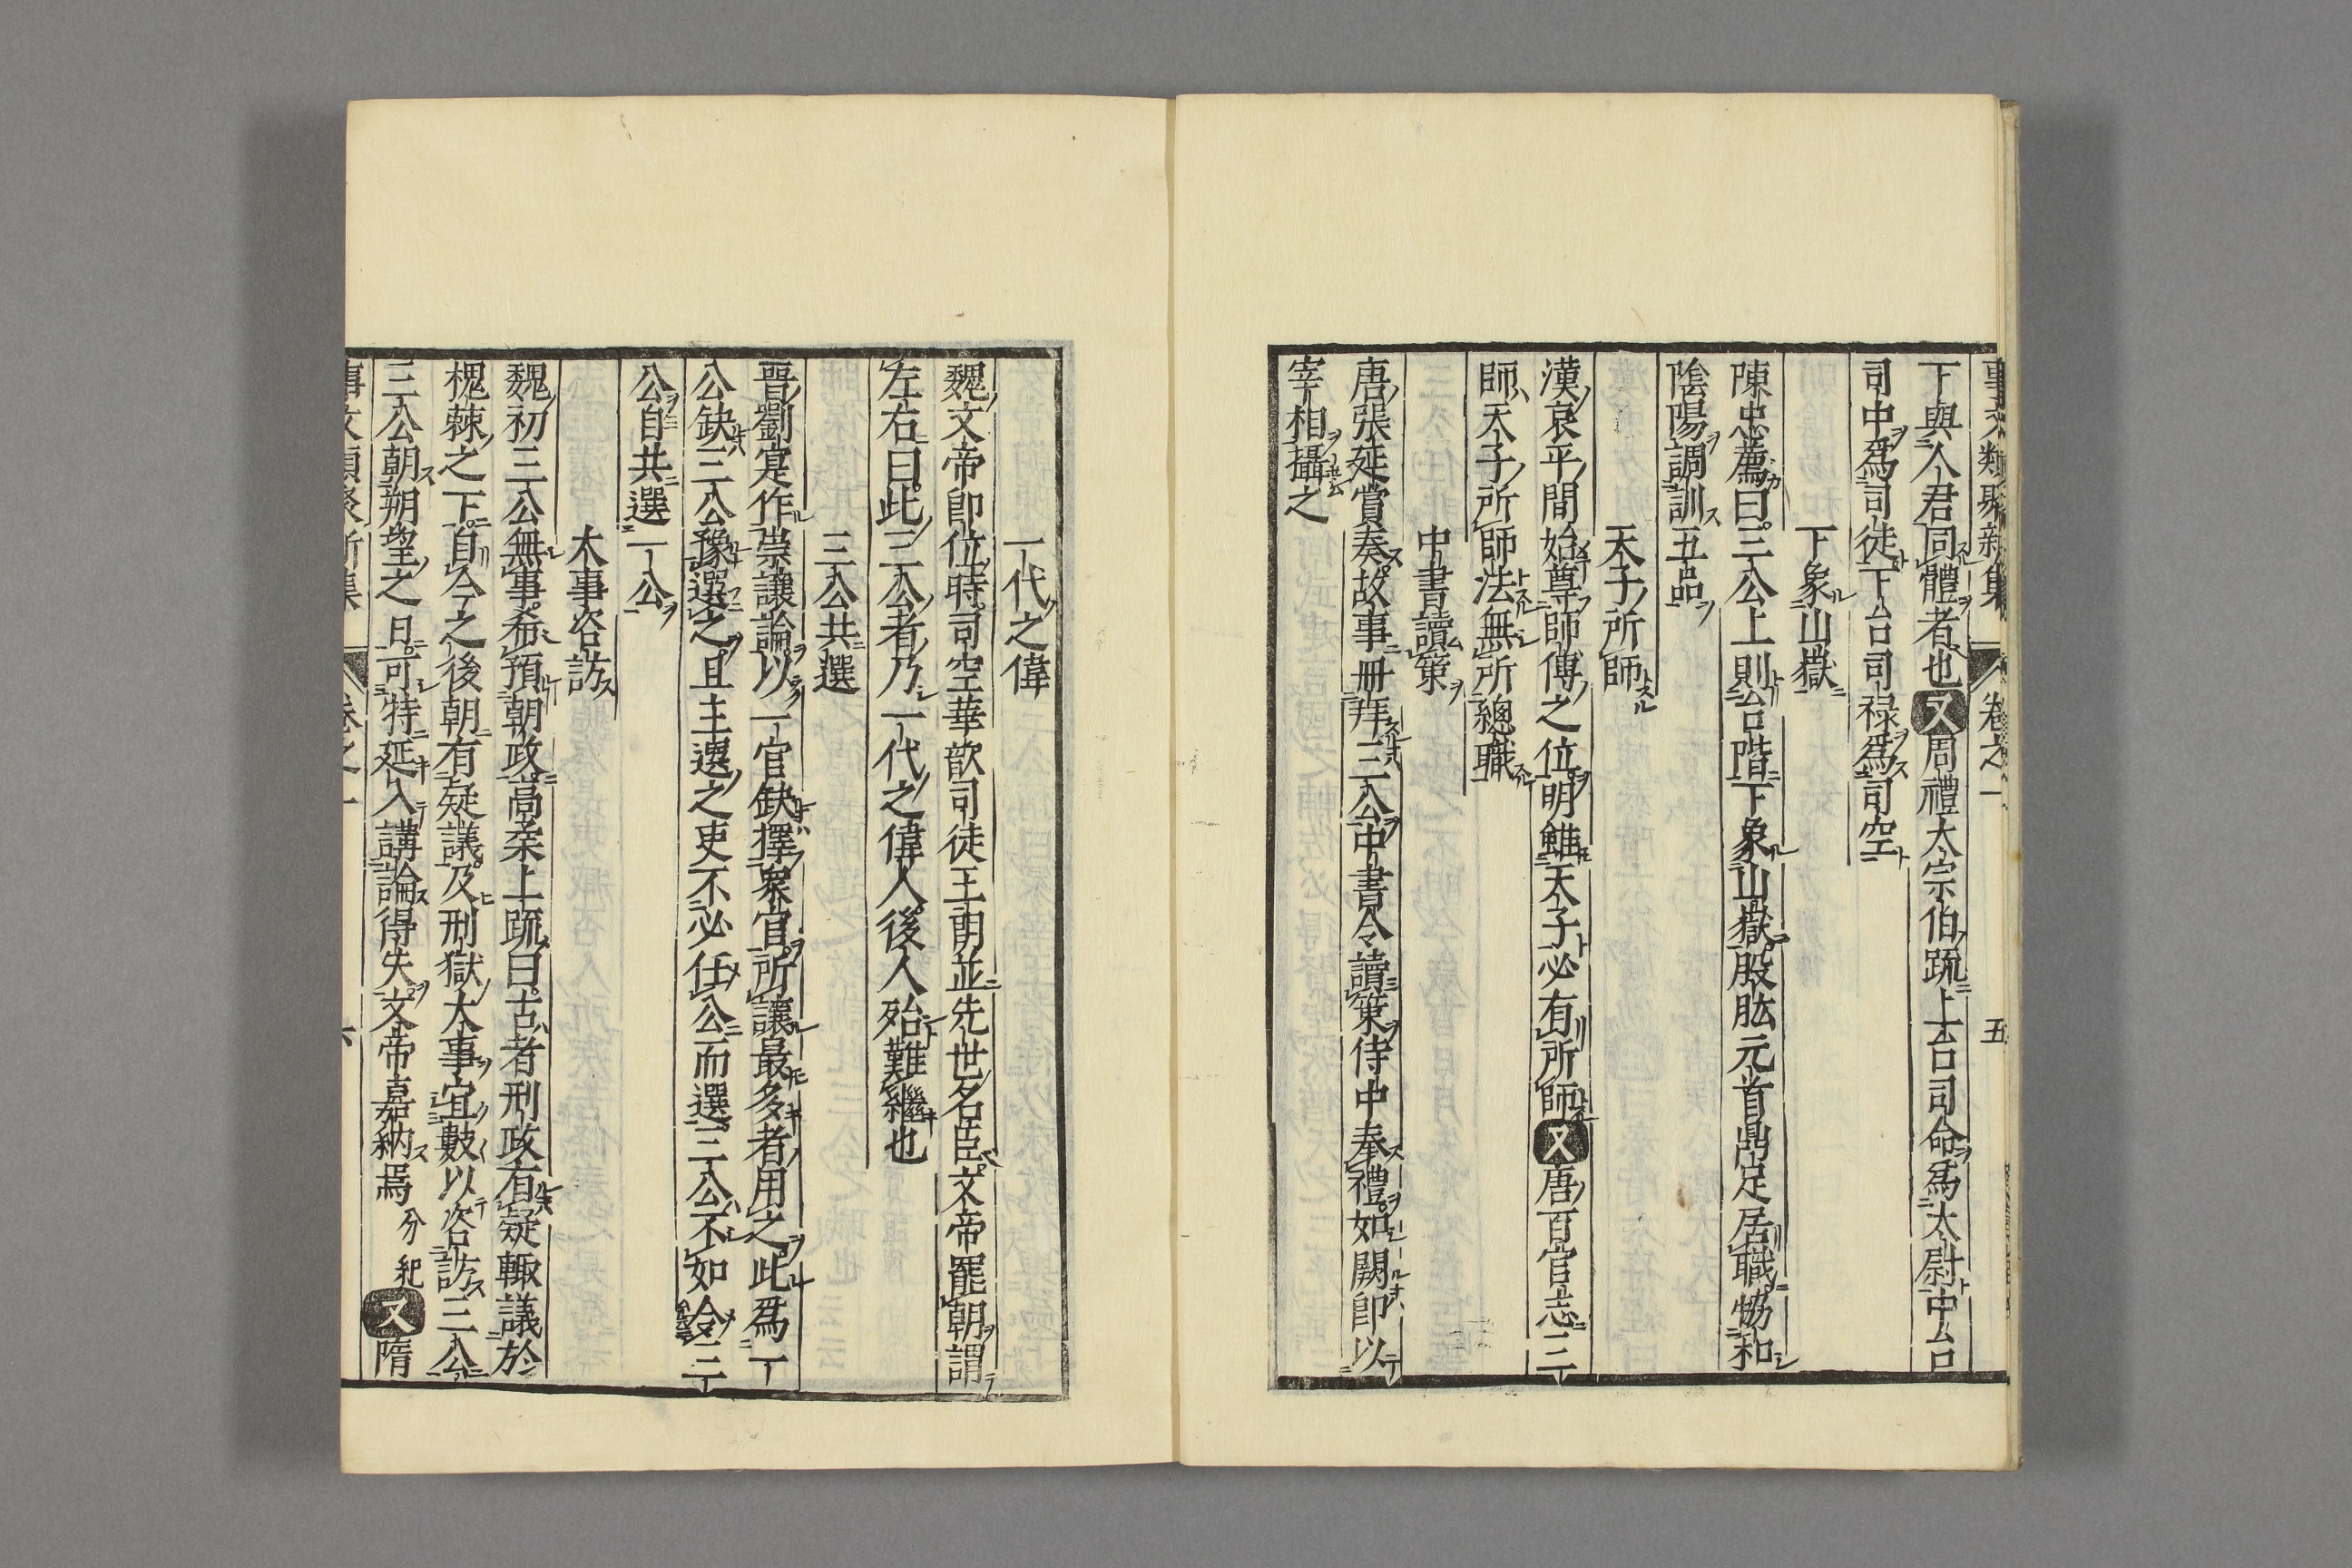 事文類聚新集 卷之一 五
下與人君同體者也又周禮大宗伯疏上台司命爲太尉中台
司中爲司徒下台司祿爲司空
下象山嶽
陳忠薦曰三公上則台階下象山嶽股肱元首鼎足居職協和
陰陽調訓五品
天子所師
漢哀平間始尊師傅之位明雖天子必有所師又唐百官志三
師天子所師法無所總職
中書讀策
唐張延賞奏故事冊拜三公中書令讀策侍中奉禮如闕卽以
宰相攝之
一代之偉
魏文帝卽位時司空華歆司徒王朗並先世名臣文帝罷朝謂
左右曰此三公者乃一代之偉人後人殆難繼也
三公共選
晉劉寔作崇讓論以一官缺擇衆官所讓最多者用之此爲一
公缺三公豫選之且主選之吏不必任公而選三公不如令三
公自共選一公
大事咨訪
魏初三公無事希預朝政高柔上疏曰古者刑政有疑輒議於
槐棘之下自今之後朝有疑議及刑獄大事宜數以咨訪三公
三公朝朔望之日可特延入講論得失文帝嘉納焉 分紀 又隋
事文類聚新集 卷之一 六